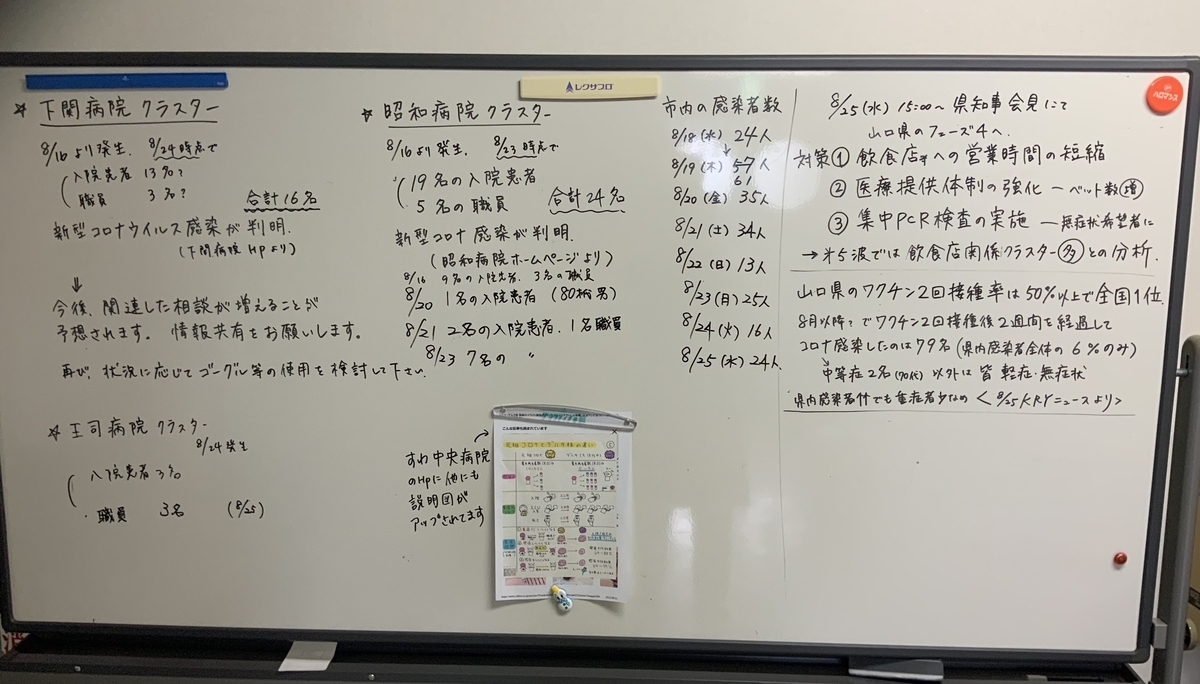 レクサプロ
☆ 下関病院 クラスター
8/16より発生. 8/24時点で
入院患者 13名?
職員 3名?
合計16名
新型コロナウイルス感染が判明.
(下関病院 HPより)
⇓
今後、関連した相談が増えることが
予想されます。 情報共有をお願いします。
再び、状況に応じてゴーグル等の使用を検討して下さい.
☆ 王司病院クラスター
8/24発生
入院患者3名
・職員 3名 (8/25)
☆ 昭和病院クラスター
8/16より発生. 8/23時点で
19名の入院患者
5名の職員 合計24名
新型コロナ感染が判明.
(昭和病院ホームページより)
8/16 9名の入院患者. 3名の職員
8/20 1名の入院患者 (80代男)
8/21 2名の入院患者. 1名職員
8/23 7名の 〃
すわ中央病院
のHpに他にも
説明図が
アップされてます
こんな記事も読まれています
市内の感染者数
8/18(水) 24人
8/19(木) 57人
61
8/20(金) 35人
8/21(土) 34人
8/22(日) 13人
8/23(月) 25人
8/24(火) 16人
8/25(水) 24人
8/25(水) 15:00〜県知事会見にて
山口県のフェーズ4へ.
対策① 飲食店等への営業時間の短縮
② 医療提供体制の強化 ーベット数増
③ 集中PCR検査の実施 ―無症状希望者に
→ 第5波では飲食店関係クラスター多との分析.
山口県のワクチン2回接種率は50%以上で全国1位.
8月以降?でワクチン2回接種後2週間を経過して
コロナ感染したのは79名(県内感染者全体の6%のみ)
中等症2名(70代)以外は皆 軽症・無症状
県内感染者件でも重症者少なめ <8/25 KRYニュースより>